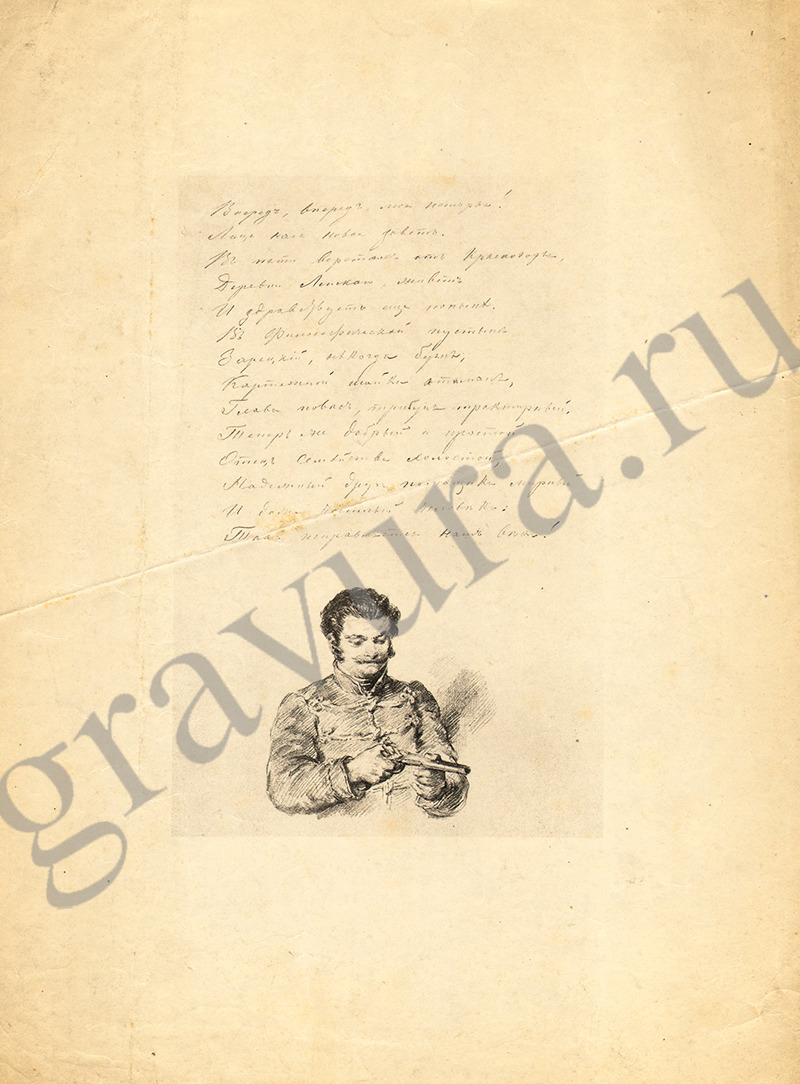 Впередъ, впередъ, моя исторья!
Лицо насъ новое зоветъ.
Въ пяти верстахъ отъ Красногорья,
Деревни Ленскаго, живетъ
И здравствуетъ еще донынѣ
Въ Философической пустынѣ
Зарецкій, нѣкогда буянъ,
Картежной шайки атаманъ,
Глава повѣсъ, трибунъ трактирный,
Теперь же добрый и простой
Отецъ семейства холостой,
Надежный другъ, помѣщикъ мирный
И даже честный человѣкъ:
Такъ исправляется нашъ вѣкъ!
gravura.ru